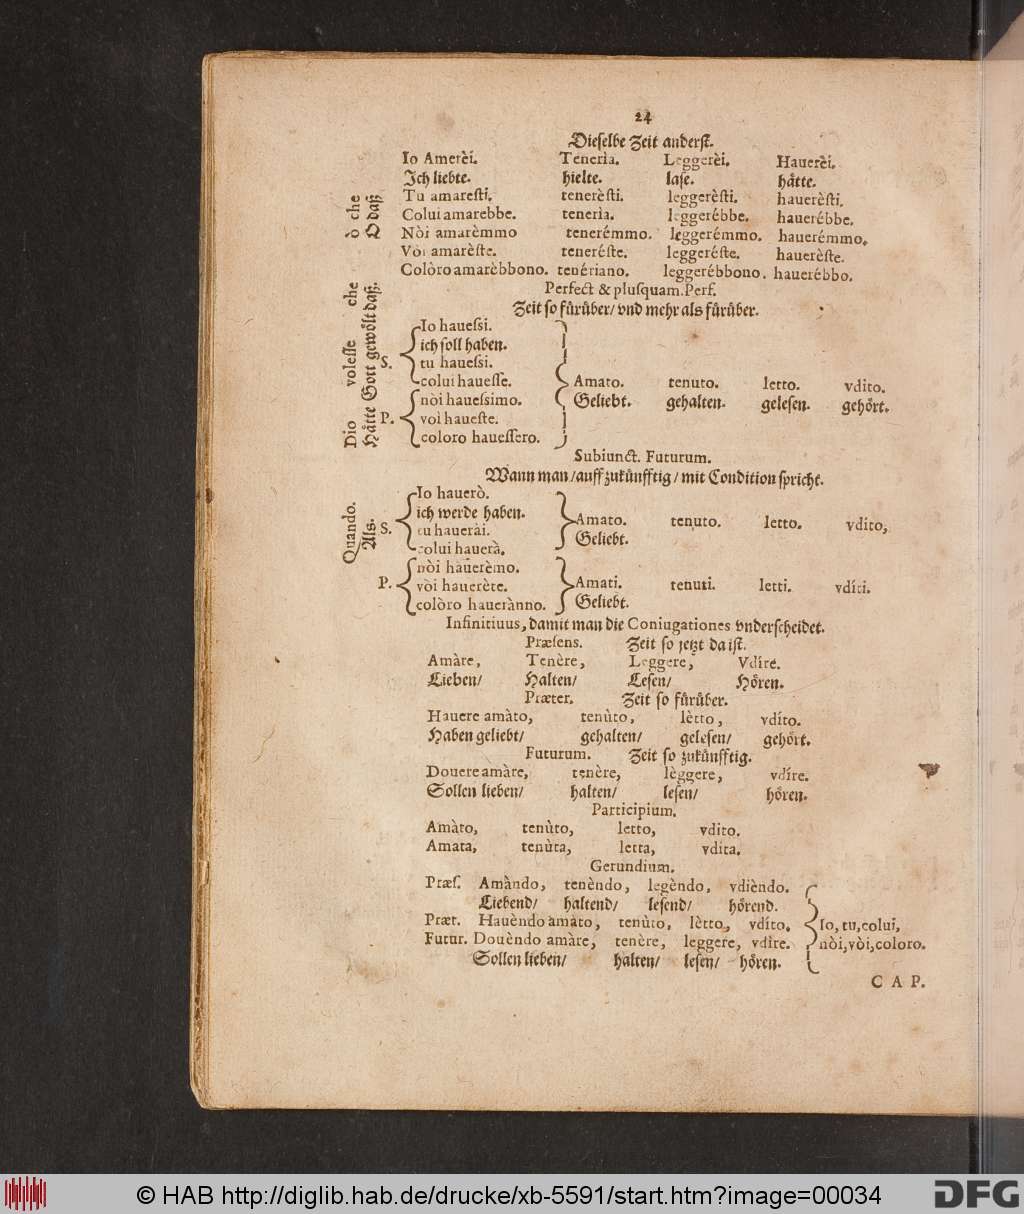 24
Dieselbe Zeit anderst.
Io Amerèi. Tenerìa. Leggerèi. Hauerèi.
Ich liebte. hielte. lase. håtte.
Tu amaresti. tenerèsti. leggerèsti. hauerèsti.
ò che
O daß
Colui amarebbe. tenerìa. leggerébbe. hauerébbe.
Nòi amarèmmo tenerémmo. leggerémmo. hauerémmo.
Vòi amarèste. teneréste. leggeréste. hauerèste.
Colòro amarèbbono. tenériano. leggerébbono. hauerébbo.
Perfect & plusquam.Perf.
Zeit so fůrůber/ vnd mehr als fůrůber.
Dio volesse che
Håtte Gott gewölt daß.
S.
Io hauessi.
ich soll haben.
tu hauessi.
colui hauesse. Amato. tenuto. letto. vdito.
P.
nòi hauessimo. Geliebt. gehalten. gelesen. gehört.
voi haueste.
coloro hauessero.
Subiunct. Futurum.
Wann man/auff zukůnfftig/ mit Condition spricht.
Quando.
Als.
S.
Io hauerò.
ich werde haben. Amato. tenuto. letto. vdito,
tu hauerài. Geliebt.
colui hauerà.
P.
nòi hauerèmo.
vòi hauerète. Amati. tenuti. letti. vdíti.
colòro haueranno. Geliebt.
Infinitiuus, damit man die Coniugationes vnderscheidet.
Præsens. Zeit so jetzt da ist.
Amàre, Tenère, Leggere, Vdíre.
Lieben/ Halten/ Lesen/ Hören.
Præter. Zeit so fůrůber.
Hauere amàto, tenùto, lètto, vdíto.
Haben geliebt/ gehalten/ gelesen/ gehört.
Futurum. Zeit so zukůnfftig.
Douere amàre, tenère, lèggere, vdíre.
Sollen lieben/ halten/ lesen/ hören.
Participium.
Amàto, tenùto, letto, vdito.
Amata, tenùta, letta, vdita.
Gerundium.
Præs. Amàndo, tenèndo, legèndo, vdièndo.
Liebend/ haltend/ lesend/ hörend.
Præt. Hauèndo amàto, tenùto, lètto, vdíto. Io, tu, colui,
Futur. Douèndo amàre, tenère, leggere, vdìre. nòi, vòi, coloro.
Sollen lieben/ halten/ lesen/ hören.
C A P.
© HAB http://diglib.hab.de/drucke/xb-5591/start.htm?image=00034
DFG